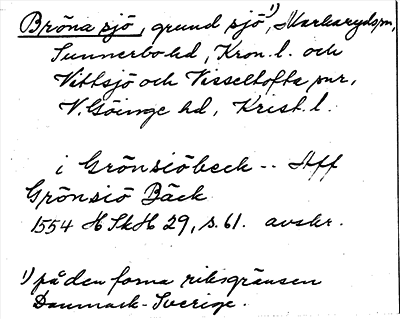 Bröna sjö, grund sjö¹⁾, Markarydspn,
Sunnerbo hd, Kron. l. och
Vittsjö och Visseltofta snr,
V. Göinge hd, Krist. l.
i Grönsiöbeck -- Aff
Grönsiö Bäck
1554 HSkH 29, s. 61. avskr.
¹⁾ på den forna riksgränsen
Danmark-Sverige.